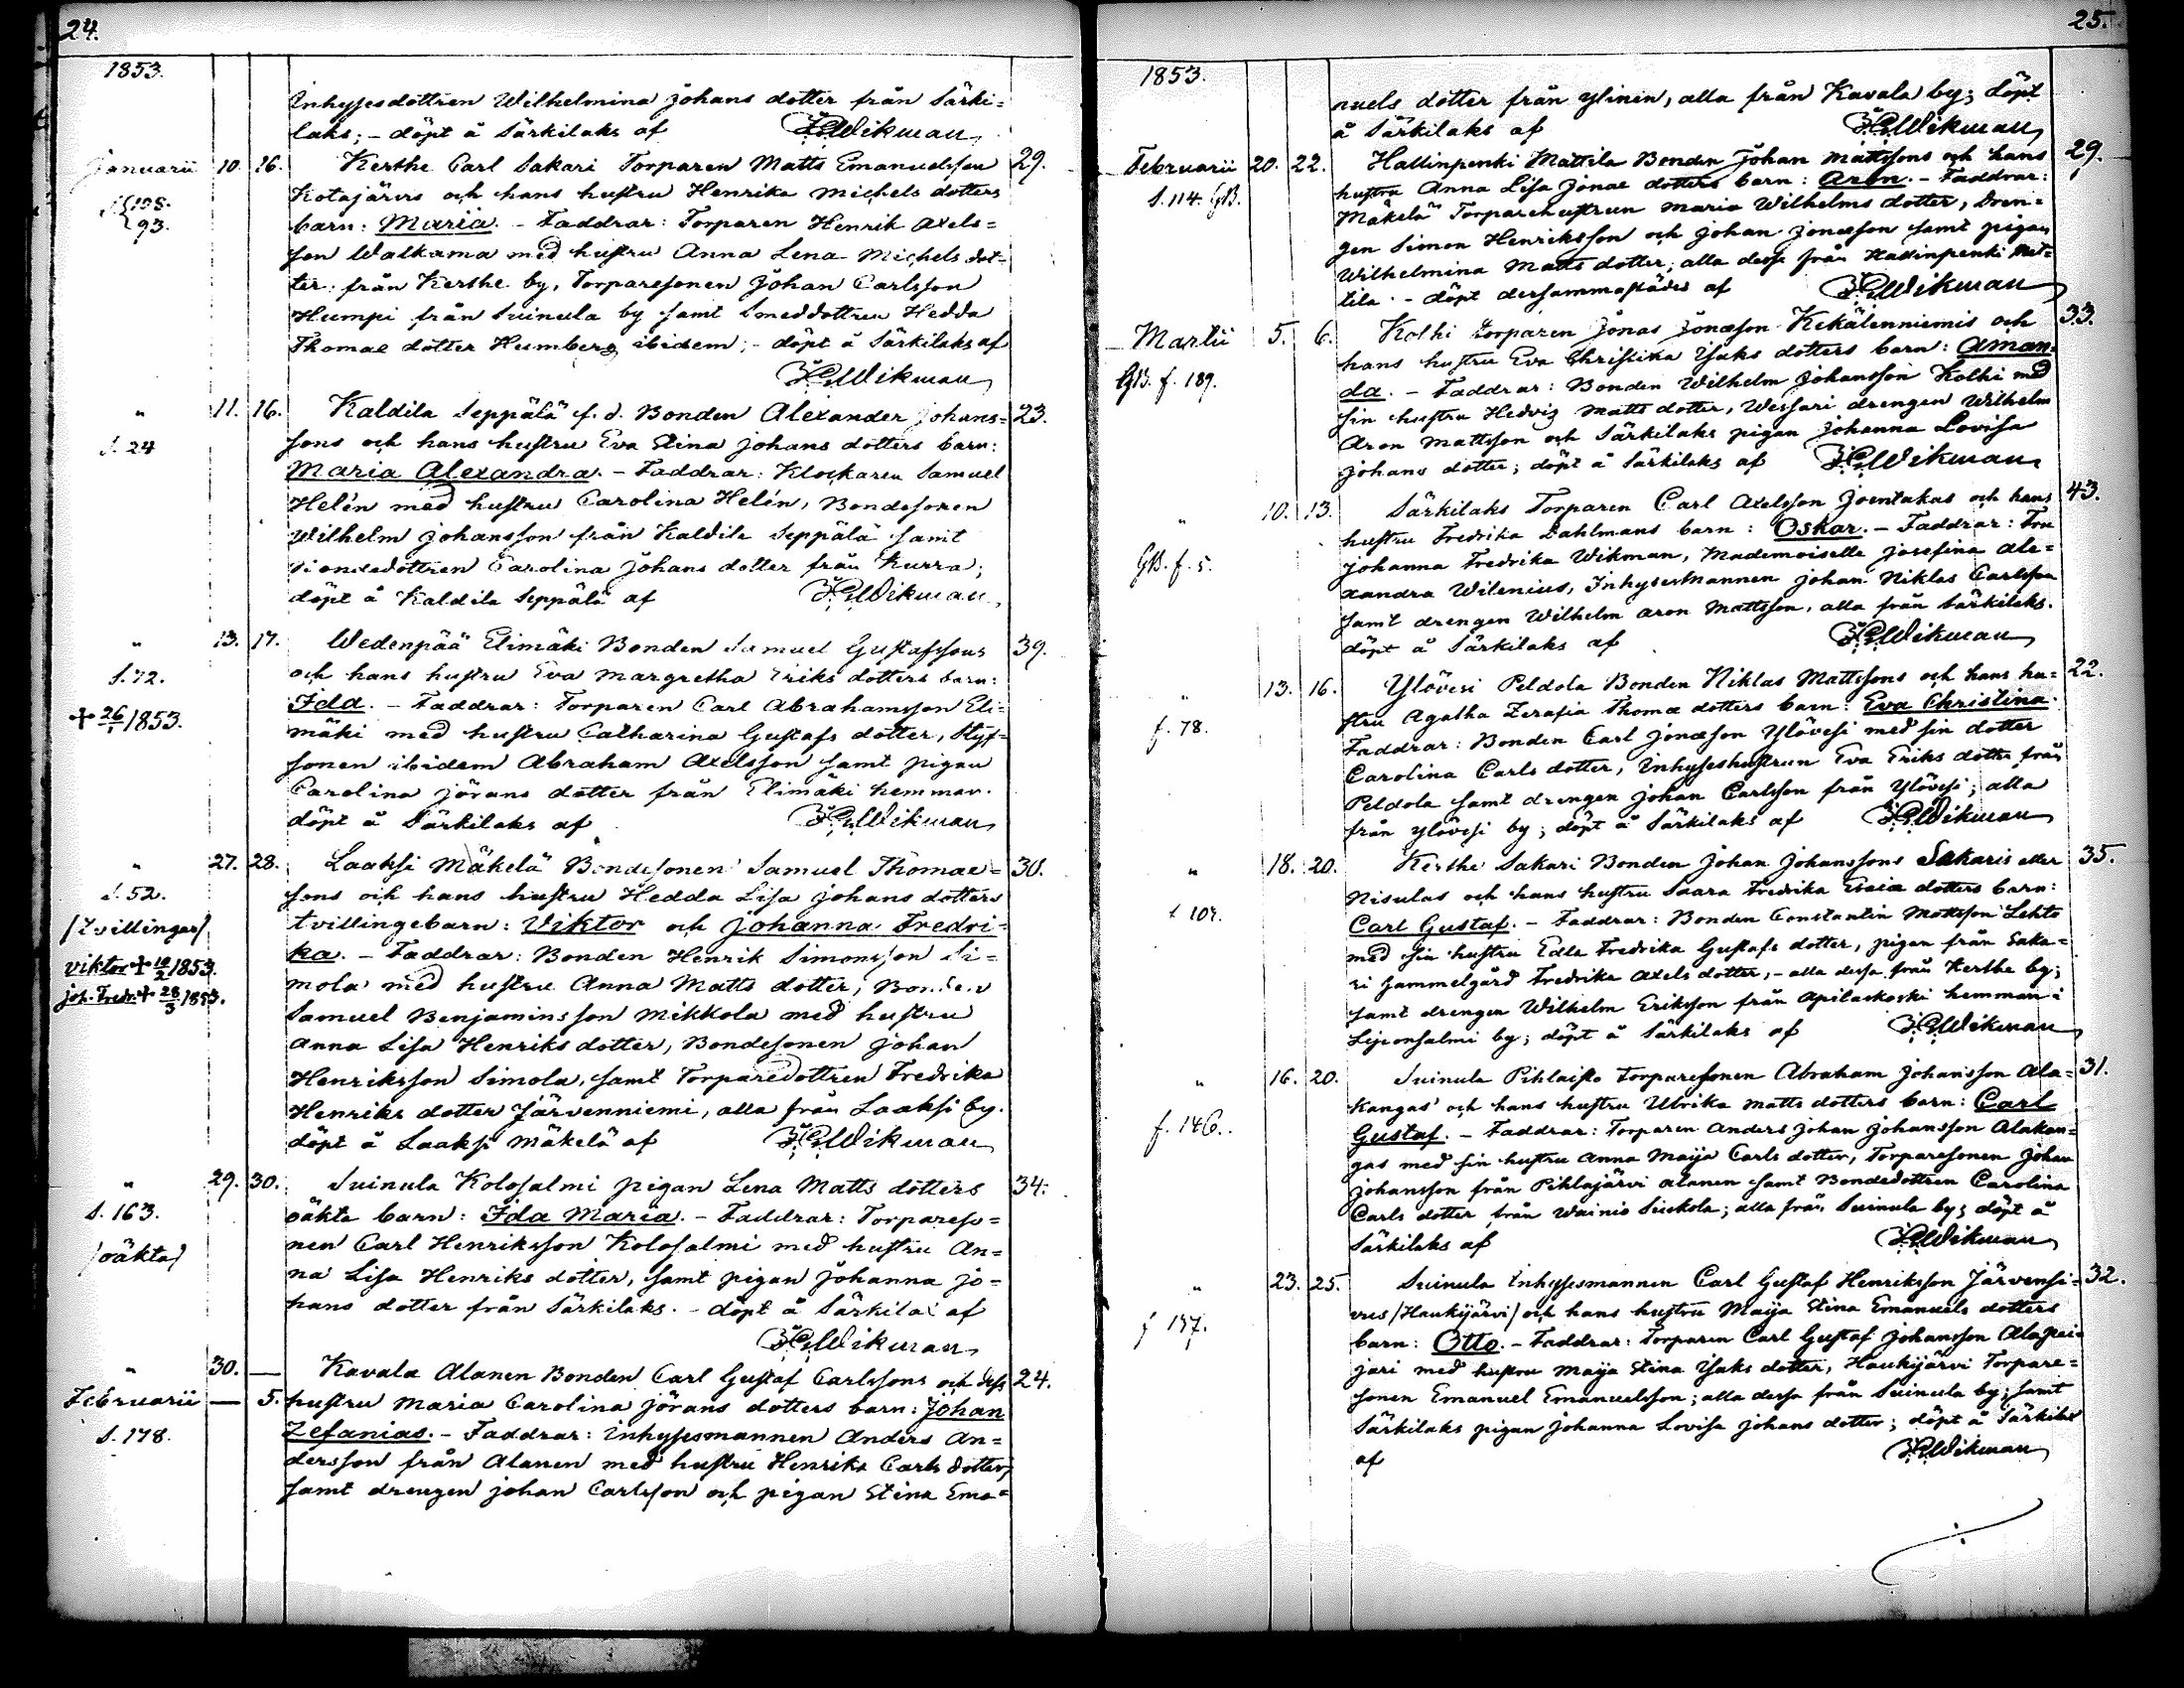 24.
1853.
Inhysesdottren Wilhelmina Johans dotter från Särki=
laks; - döpt å Särkilaks af Wikman
Januarii 10. 16. Kerthe Carl Sakari Torparen Matts Emanuelsson 29.
Kotajärvis och hans hustru Henrika Michels dotters
93. barn: Maria. - Faddrar: Torparen Henrik Axels=
son Walkama med hustru Anna Lena Michels dot=
ter från Kerthe by, Torparesonen Johan Carlsson
Humpi från Suinula by samt Smeddottren Hedda
Thomae dotter Humberg ibidem; - döpt å Särkilaks af
Wikman
" 11. 16. Kaldila Seppälä f. d. Bonden Alexander Johans= 23.
S. 24 sons och hans hustru Eva Stina Johans dotters barn:
Maria Alexandra. - Faddrar: Klockaren Samuel
Helén med hustru Carolina Helén, Bondesonen
Wilhelm Johansson från Kaldila Seppälä samt
Bondedottren Carolina Johans dotter från Kurra;
döpt å Kaldila Seppälä af Wikman
" 13. 17. Wedenpää Elimäki Bonden Samuel Gustafssons 39.
S. 72. och hans hustru Eva Margretha Eriks dotters barn:
+ 26/1 1853. Ida. - Faddrar: Torparen Carl Abrahamsson Eli=
mäki med hustru Catharina Gustafs dotter, Styf=
sonen ibidem Abraham Axelsson samt pigan
Carolina Jörans dotter från Elimäki hemman.
döpt å Särkilaks af Wikman
" 27. 28. Laaksi Mäkelä Bondesonen Samuel Thomae= 30.
S. 52. sons och hans hustru Hedda Lisa Johans dotters
/Tvillingar/ tvillingebarn: Viktor och Johanna Fredri=
Viktor + 10/2 1853. ka. - Faddrar: Bonden Henrik Simonsson Si=
Joh. Fredr. + 28/3 1853. mola med hustru Anna Matts dotter, Bonden
Samuel Benjaminsson Mikkola med hustru
Anna Lisa Henriks dotter, Bondesonen Johan
Henriksson Simola, samt Torparedottren Fredrika
Henriks dotter Järvenniemi, alla från Laaksi by.
döpt å Laaksi Mäkelä af Wikman
" 29. 30. Suinula Kolosalmi pigan Lena Matts dotters 34.
S. 163. oäkta barn: Ida Maria. - Faddrar: Torpareso=
/oäkta/ nen Carl Henriksson Kolosalmi med hustru An=
na Lisa Henriks dotter, samt pigan Johanna Jo=
hans dotter från Särkilaks. - döpt å Särkilax af
Wikman
" 30. — Kavala Alanen Bonden Carl Gustaf Carlssons och dess 24.
Februarii — 5. hustru Maria Carolina Jörans dotters barn: Johan
S. 178. Zefanias. - Faddrar: Inhysesmannen Anders An=
dersson från Alanen med hustru Henrika Carls dotter,
samt drengen Johan Carlsson och pigan Stina Ema=
25.
1853.
nuels dotter från Ylinen, alla från Kavala by; döpt
å Särkilaks af Wikman
Februarii 20. 22. Hallinpenki Mattila Bonden Johan Mattssons och hans 29.
S. 114. GB. hustru Anna Lisa Jonae dotters barn: Aron. - Faddrar:
Mäkelä Torparehustrun Maria Wilhelms dotter, Dren=
gen Simon Henriksson och Johan Jonæson samt pigan
Wilhelmina Matts dotter; alla dessa från Hallinpenki Mat=
tila. - döpt dersammastädes af Wikman
Martii 5. 6. Kolhi Torparen Jonas Jonæson Kekälenniemis och 33.
GB. f. 189. hans hustru Eva Christika Isaks dotters barn: Aman=
da. - Faddrar: Bonden Wilhelm Johansson Kolhi med
sin hustru Hedvig Matts dotter, Wessari drengen Wilhelm
Aron Mattsson och Särkilaks pigan Johanna Lovisa
Johans dotter; döpt å Särkilaks af Wikman
" 10. 13. Särkilaks Torparen Carl Axelsson Joentakas och hans 43.
GB. f. 5. hustru Fredrika Dahlmans barn: Oskar. - Faddrar: Fru
Johanna Fredrika Wikman, Mademoiselle Josefina Ale=
xandra Wilenius, Inhysesmannen Johan Niklas Carlsson
samt drengen Wilhelm Aron Mattsson, alla från Särkilaks.
döpt å Särkilaks af Wikman
" 13. 16. Ylövesi Peldola Bonden Niklas Mattssons och hans hu= 22.
f. 78. stru Agatha Zerafia Thomæ dotters barn: Eva Christina.
Faddrar: Bonden Carl Jonæson Ylövesi med sin dotter
Carolina Carls dotter, Inhyseshustrun Eva Eriks dotter från
Peldola samt drengen Johan Carlsson från Ylövesi; alla
från Ylövesi by; döpt å Särkilaks af Wikman
" 18. 20. Kerthe Sakari Bonden Johan Johanssons Sakaris eller 35.
Nisulas och hans hustru Saara Fredrika Esaiæ dotters barn:
Carl Gustaf. - Faddrar: Bonden Constantin Mattsson Lehto
med sin hustru Edla Fredrika Gustafs dotter, pigan från Saka=
ri Gammelgård Fredrika Axels dotter, - alla dessa från Kerthe by;
samt drengen Wilhelm Eriksson från Apilaskoski hemman i
by; döpt å Särkilaks af Wikman
" 16. 20. Suinula Pihlaisto Torparesonen Abraham Johansson Ala= 31.
f. 146. kangas och hans hustru Ulrika Matts dotters barn: Carl
Gustaf. - Faddrar: Torparen Anders Johan Johansson Alakan=
gas med sin hustru Anna Maija Carls dotter, Torparesonen Johan
Johansson från Pihlajärvi Alanen samt Bondedottren Carolina
Carls dotter från Wainio; alla från Suinula by; döpt å
Särkilaks af Wikman
" 23. 25. Suinula Inhysesmannen Carl Gustaf Henriksson Järvensi= 32.
f 157. vus /Haukijärvi/ och hans hustru Maija Stina Emanuels dotters
barn: Otto. - Faddrar: Torparen Carl Gustaf Johansson Alapei=
jari med hustru Maija Stina Isaks dotter, Haukijärvi Torpare=
sonen Emanuel Emanuelsson; alla dessa från Suinula by; samt
Särkilaks pigan Johanna Lovisa Johans dotter; döpt å Särkilax
af Wikman